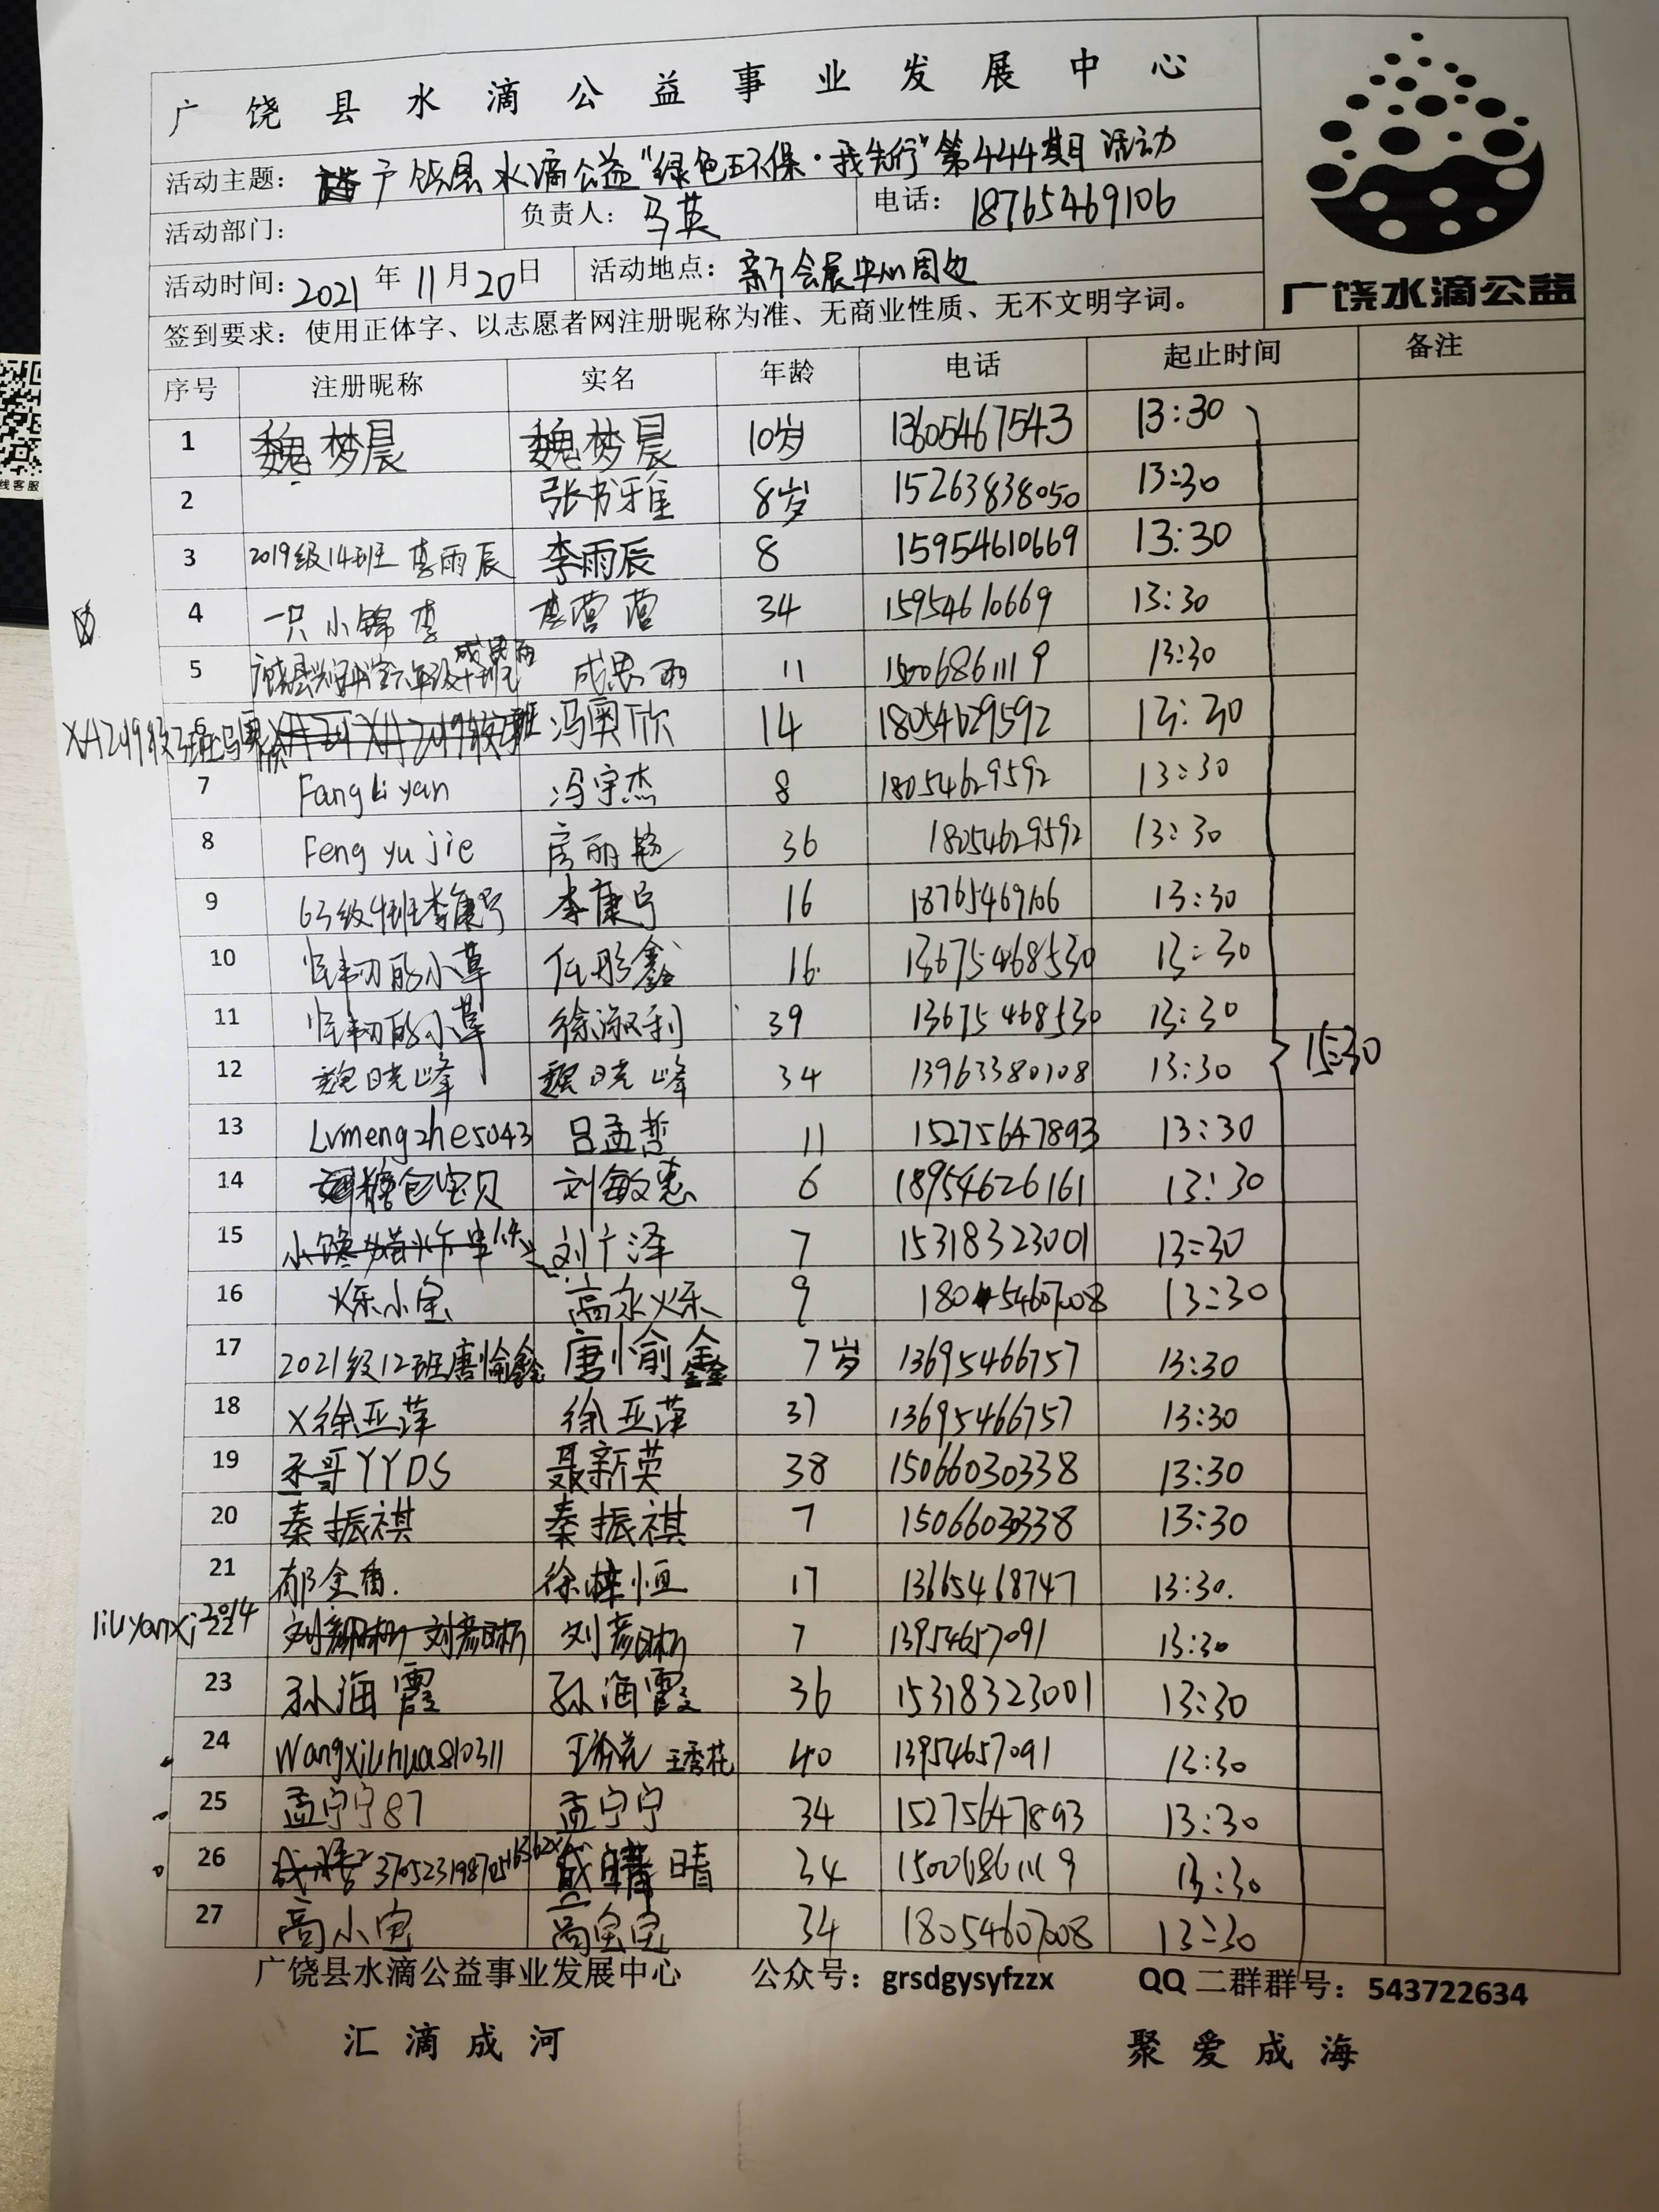 广饶县水滴公益事业发展中心
活动主题： 广饶县水滴公益"绿色环保·我先行"第444期 活动
活动部门： 负责人：马英 电话：18765469106
活动时间：2021年11月20日 活动地点：新会展中心周边
签到要求：使用正体字、以志愿者网注册昵称为准、无商业性质、无不文明字词。
广饶水滴公益
序号 注册昵称 实名 年龄 电话 起止时间 备注
1 魏梦晨 魏梦晨 10岁 13605467543 13:30
2 张书雅 8岁 15263838050 13:30
3 2019级14班 李雨辰 李雨辰 8 15954610669 13:30
4 一只小锦李 李营营 34 15954610669 13:30
5 成思雨 成思雨 11 15006861119 13:30
6 冯奥欣 14 18054629592 13:30
7 Fangliyan 冯宇杰 8 18054629592 13:30
8 Feng yu jie 房丽艳 36 18054629592 13:30
9 63级4班李康宁 李康宁 16 18765469106 13:30
10 坚韧的小草 任彤鑫 16 13675468530 13:30
11 坚韧的小草 徐淑利 39 13675468530 13:30
12 魏晓峰 魏晓峰 34 13963380108 13:30
15:30
13 Lvmengzhe5043 吕孟哲 11 15275647893 13:30
14 糖包宝贝 刘敏惠 6 18954626161 13:30
15 刘广泽 7 15318323001 13:30
16 烁小宝 高永烁 9 18054607008 13:30
17 2021级12班唐愉鑫 唐愉鑫 7岁 13695466757 13:30
18 X徐亚萍 徐亚萍 37 13695466757 13:30
19 丞哥YYDS 聂新英 38 15066030338 13:30
20 秦振祺 秦振祺 7 15066030338 13:30
21 郁金香. 徐梓恒 17 13665468747 13:30.
liuyanxi2014
22 刘彦昕 刘彦昕 7 13954657091 13:30
23 孙海霞 孙海霞 36 15318323001 13:30
24 Wangxiuhua810311 王秀花 40 13954657091 13:30
25 孟宁宁87 孟宁宁 34 15275647893 13:30
26 晴 34 15006861119 13:30
27 高小宝 高宝宝 34 18054607008 13:30
广饶县水滴公益事业发展中心 公众号：grsdgysyfzzx QQ二群群号：543722634
汇滴成河 聚爱成海
线客服